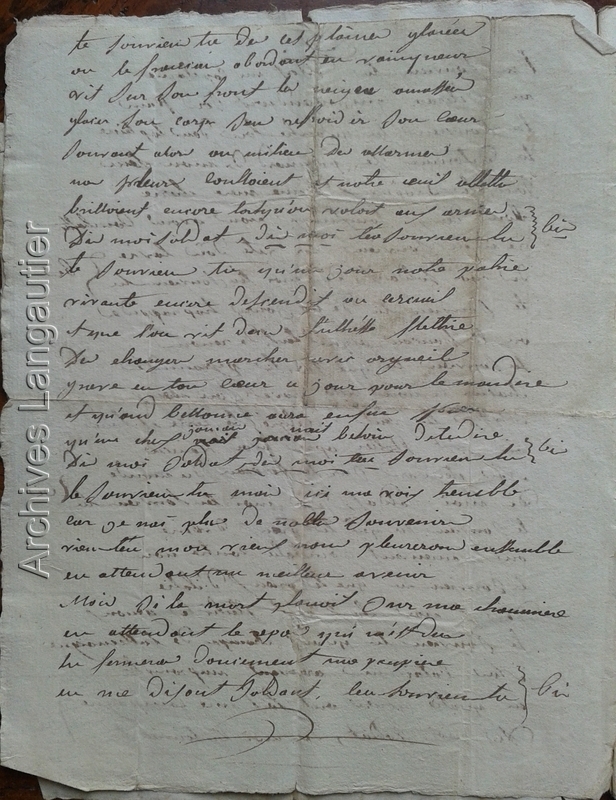 te souvien tu de ces plaine glacées
ou le francai abordant en vainqueur
vit sur son front la neige amassée
glacer son corp san reffroidir son cœur
souvant alor au milieu des allarme
no pleurs coulloient et notre œuil
brilloient encore lorsqu'on voloit aux arme
Di moi soldat, di moi t'en souvien tu } bis
te souvien tu qu'un jour notre patrie
vivante encore desendit au cercueil
et que l'on vit dans flettrie
De etranger marcher avec orgueil
grave en ton cœur ce jour pour le maudire
et quand bellonne aura enfin
qu'un chef jamais nait besoin de te dire
Di moi soldat di moi t'en souvien tu } bis
te souvien tu mai ici ma voix tremble
car je nai plu de noble souvenir
vien t'en mon vieux nou pleureron ensemble
en attendant un meilleur avenir
Mais si la mort planoit sur ma chaumiere
en attendant le repo qui m'est du
tu fermera doucement ma paupiere
en me disant soldat, t'en souvien tu } bis
Archives Langautier